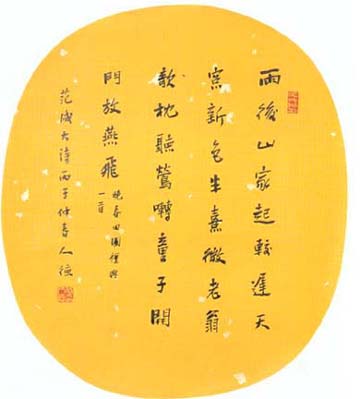 雨後山家起較遲天
窓新色半熹微老翁
欹枕聽鶯囀童子開
門放燕飛
晚春田園雜興
一首
范成大詩丙子仲春人